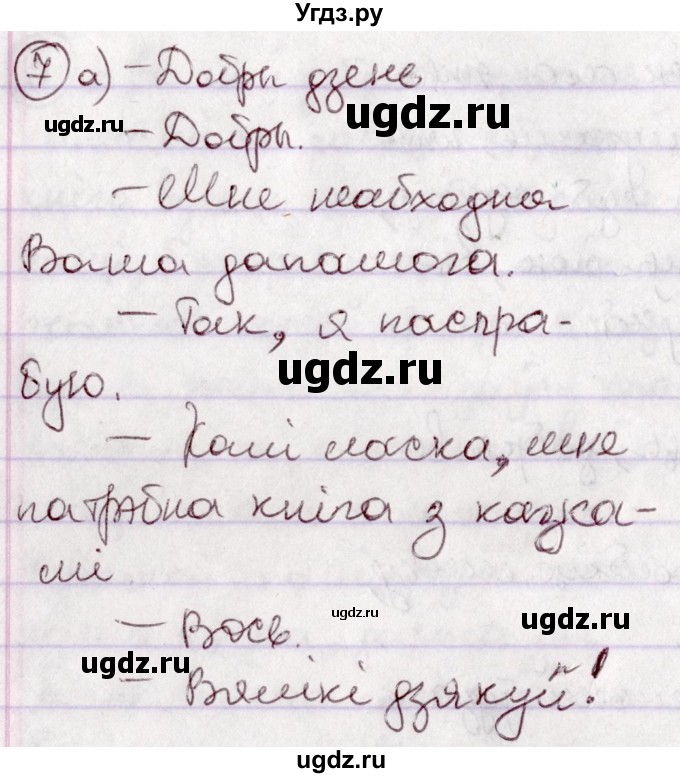 Угдз.ру
7 а) – Добры дзень
ugdz.ru
ugdz.ru
– Добры.
– Мне неабходна
Ваша дапамога.
ugdz.ru
ugdz.ru
– Так, я паспра-
ugdz.ru
бую.
– Калі ласка, мне
патрэбна кніга з казка-
мі
ugdz.ru
ugdz.ru
– Вось.
ugdz.ru
– Вялікі дзякуй!
ugdz.ru